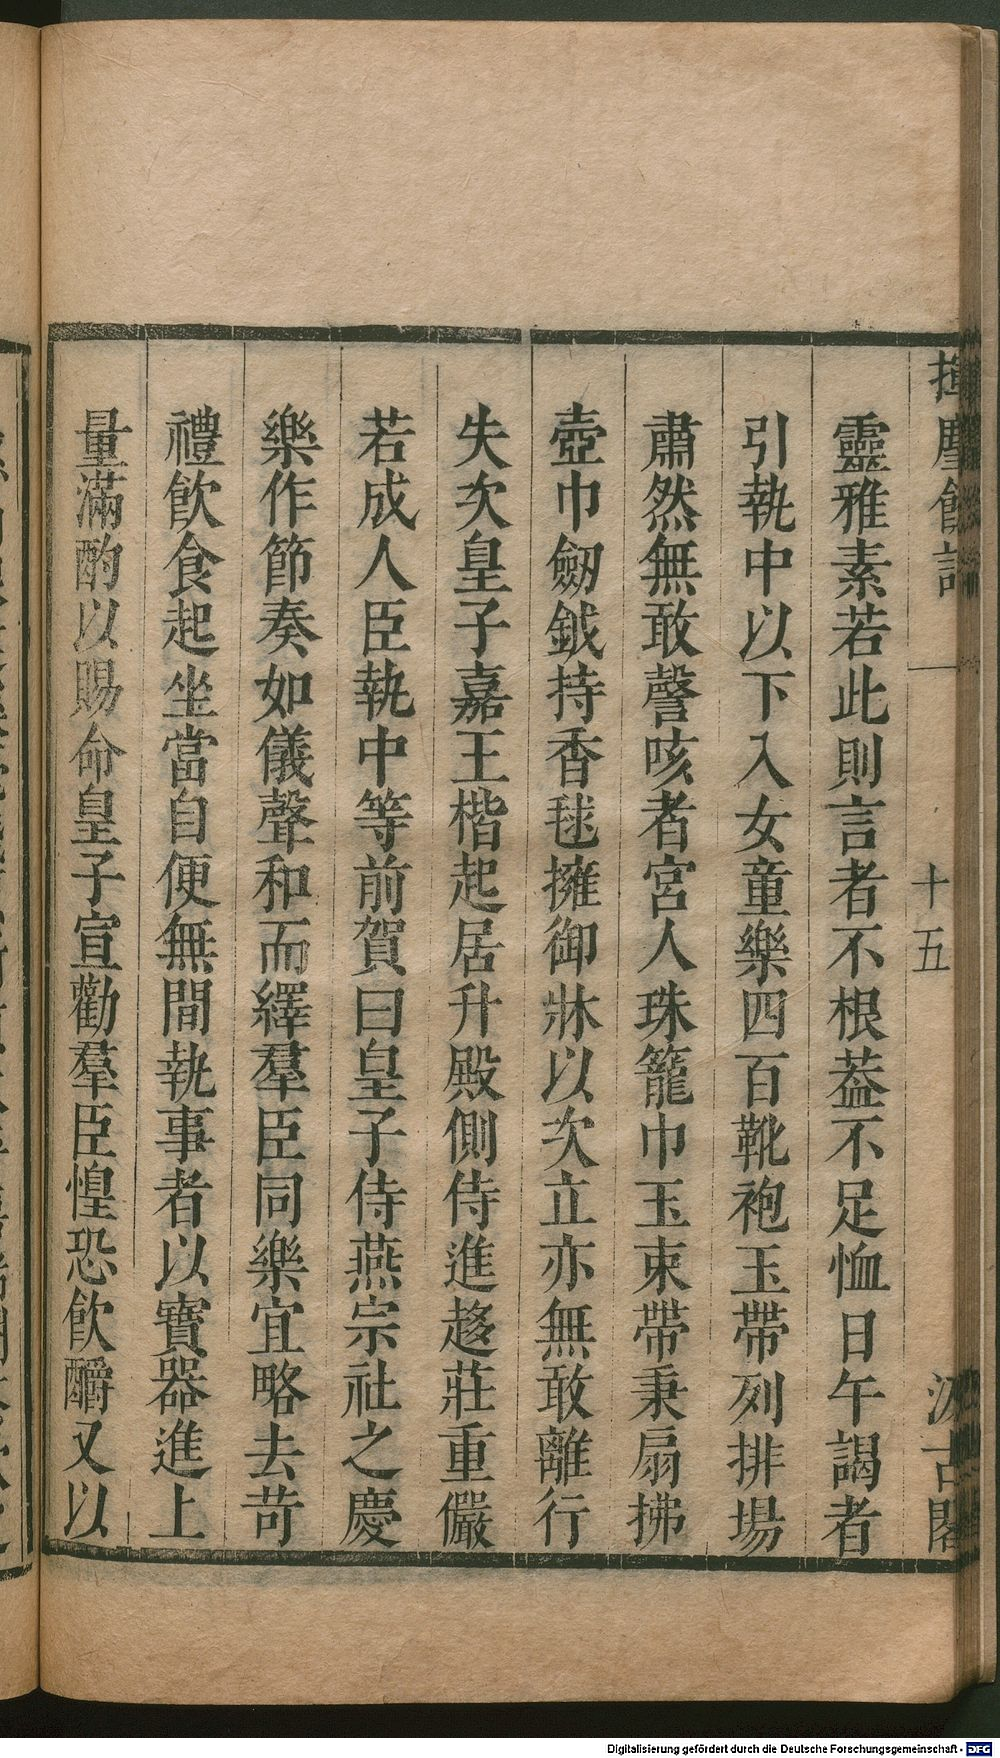 揮麈餘話
十五
汲古閣
靈雅素若此則言者不根葢不足恤日午謁者
引執中以下入女童樂四百靴袍玉帶列排場
肅然無敢謦咳者宮人珠籠巾玉束帶秉扇拂
壺巾劒鉞持香毬擁御牀以次立亦無敢離行
失次皇子嘉王楷起居升殿側侍進趍莊重儼
若成人臣執中等前賀曰皇子侍燕宗社之慶
樂作節奏如儀聲和而繹羣臣同樂宜略去苛
禮飲食起坐當自便無間執事者以寶器進上
量滿酌以賜命皇子宣勸羣臣惶恐飲釂又以
Digitalisierung gefördert durch die Deutsche Forschungsgemeinschaft - DFG